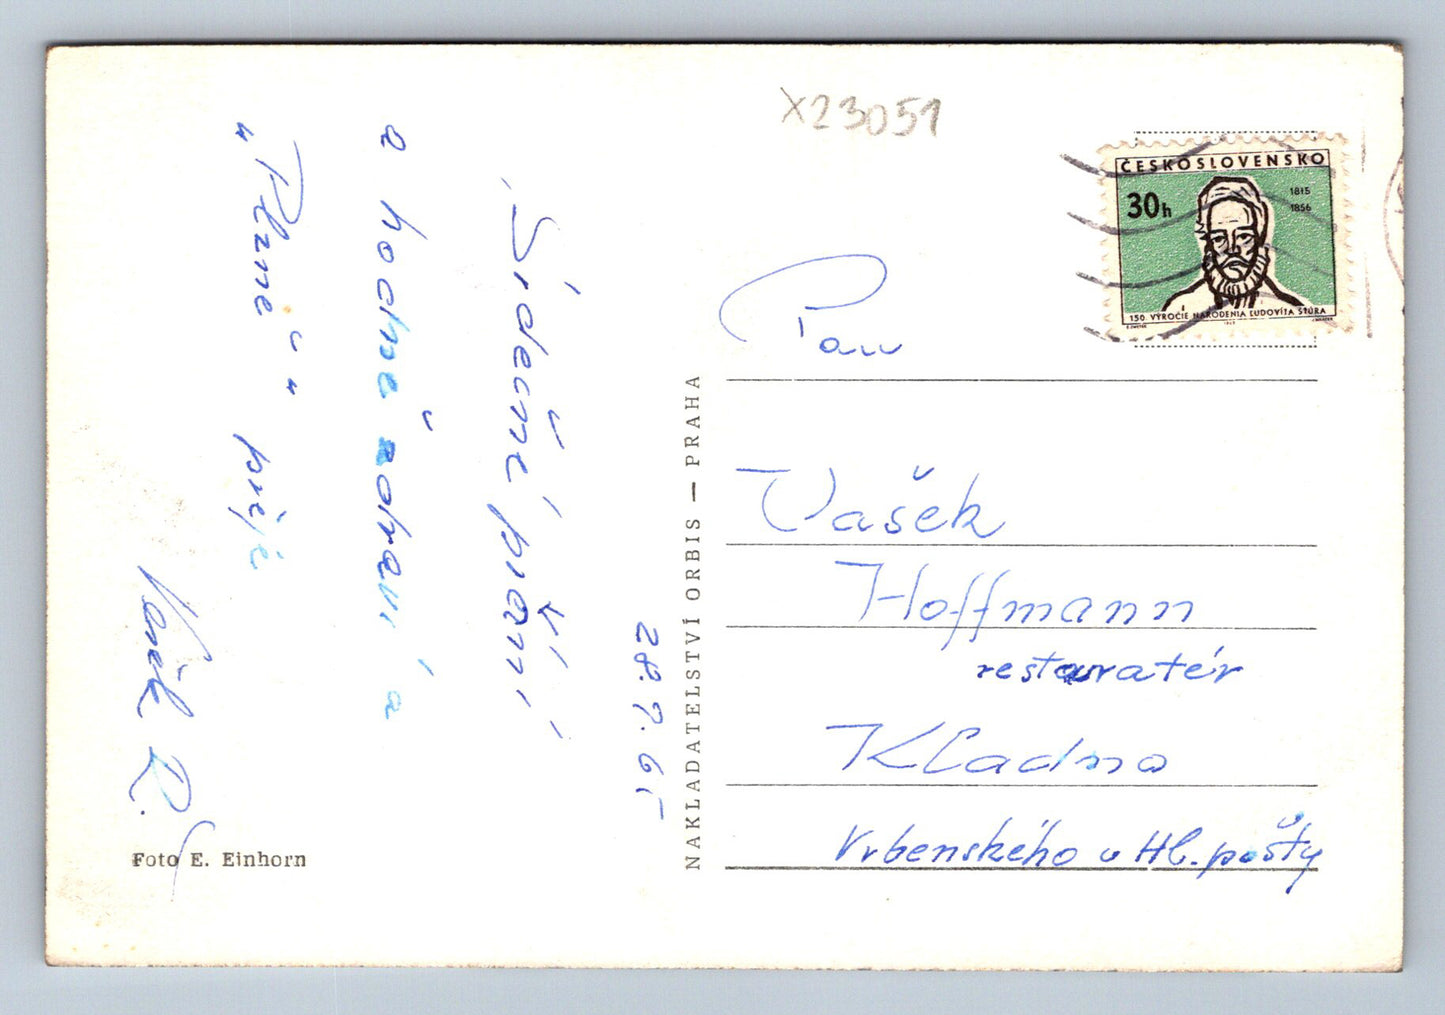 28. 7. 65
Srdečné přání
a hodně zdraví a
„Plzně“ přeje
Foto E. Einhorn
NAKLADATELSTVÍ ORBIS — PRAHA
X23051
ČESKOSLOVENSKO
30h
1815
1856
150. VÝROČIE NARODENIA ĽUDOVÍTA ŠTÚRA
Pan
Vašek
Hoffmann
restauratér
Kladno
Vrbenského u Hl. pošty